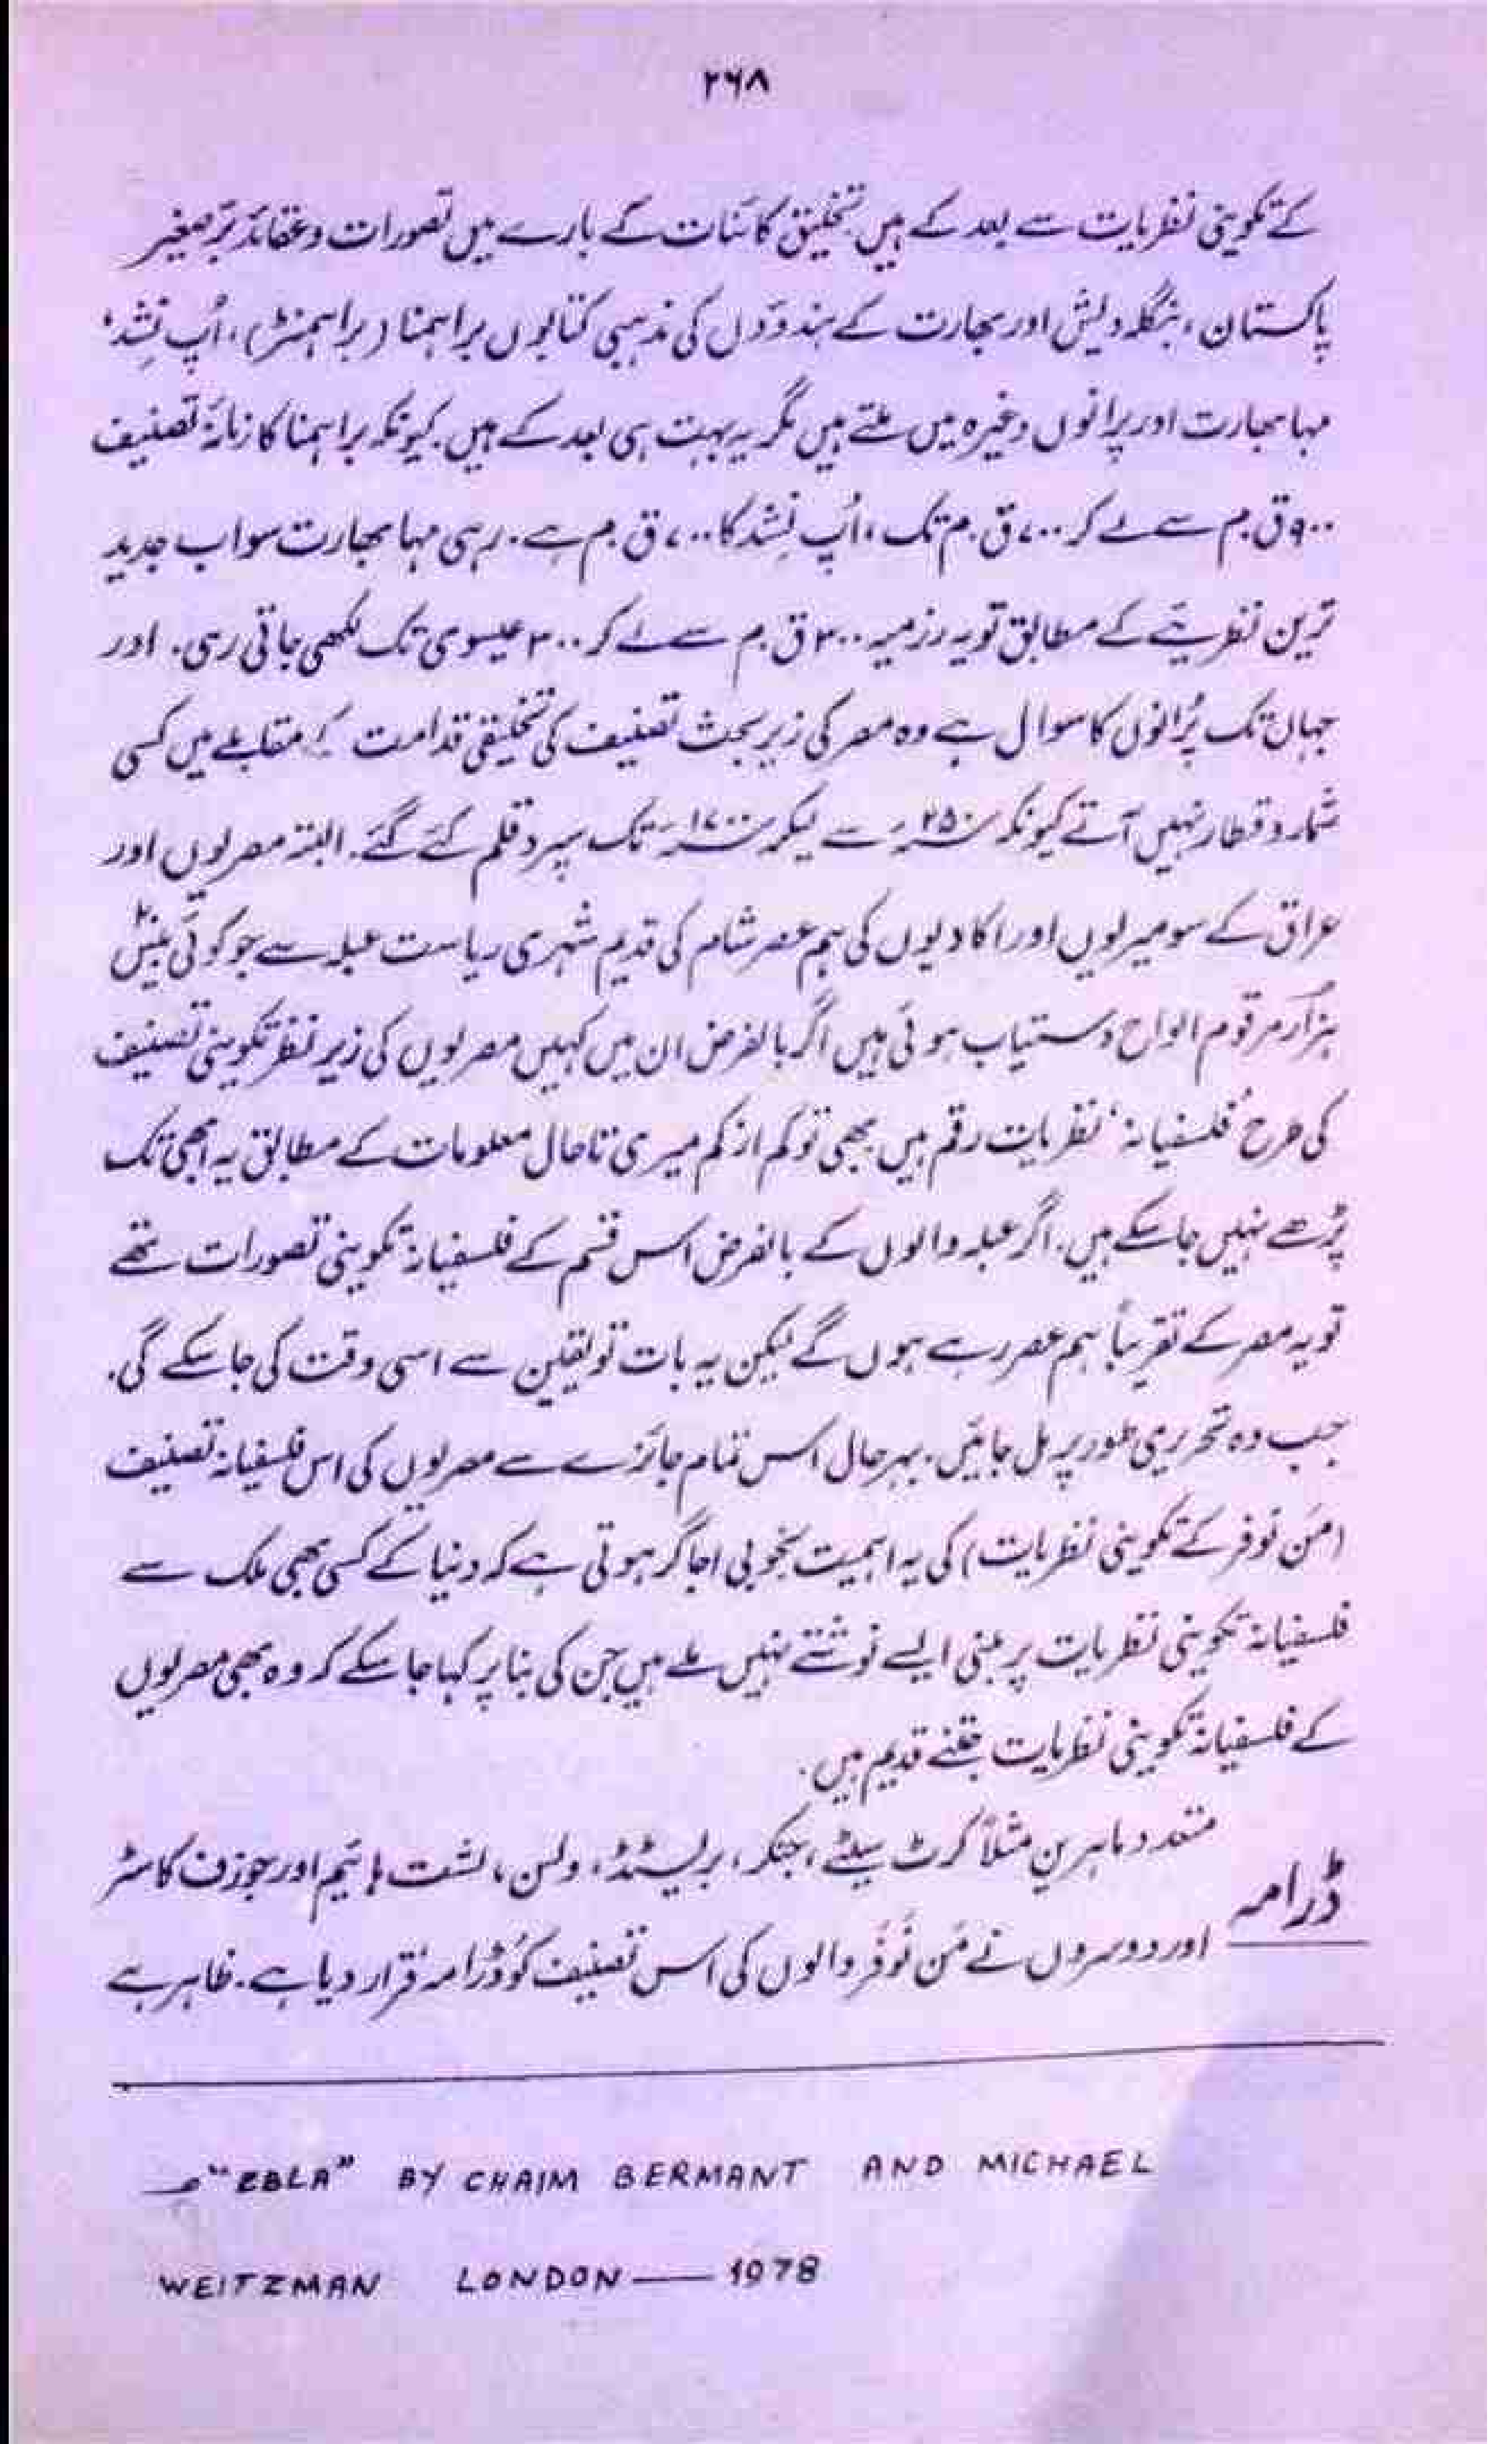 ۲۶۸
کے تکوینی نظریات سے بعد کے ہیں تخلیق کائنات کے بارے میں تصورات و عقائد برّصغیر
پاکستان، بنگلہ دلیش اور بھارت کے ہندوؤں کی مذہبی کتابوں براہمنا (براہمنز)، اُپ نِشد،
مہا بھارت اور پرانوں وغیرہ میں ملتے ہیں مگر یہ بہت ہی بعد کے ہیں۔ کیونکہ براہمنا کا زمانۂ تصنیف
۹۰۰ ق۔م سے لے کر ۷۰۰ ق۔م تک، اُپ نِشد کا ۷۰۰ ق۔م ہے۔ رہی مہا بھارت سو اب جدید
ترین نظریئے کے مطابق تو یہ رزمیہ ۳۰۰ ق۔م سے لے کر ۳۰۰ عیسوی تک لکھی جاتی رہی۔ اور
جہاں تک پُرانوں کا سوال ہے وہ مصر کی زیر بحث تصنیف کی تخلیقی قدامت کے مقابلے میں کسی
شمار و قطار نہیں آتے کیونکہ ۲۵۰ء سے لیکر ۱۷۰۰ء تک سپرد قلم کئے گئے۔ البتہ مصریوں اور
عراق کے سومیریوں اور اکادیوں کی ہم عصر شام کی قدیم شہری ریاست عبلہ سے جو کوئی بیس
ہزار مرقوم الواح دستیاب ہوئی ہیں اگر بالفرض ان میں کہیں مصریوں کی زیر نظر تکوینی تصنیف
کی طرح 'فلسفیانہ' نظریات رقم ہیں بھی تو کم از کم میری تاحال معلومات کے مطابق یہ ابھی تک
پڑھے نہیں جا سکے ہیں۔ اگر عبلہ والوں کے بالفرض اس قسم کے فلسفیانہ تکوینی تصورات تھے
تو یہ مصر کے تقریباً ہم عصر رہے ہوں گے لیکن یہ بات تو یقین سے اسی وقت کی جا سکے گی۔
جب وہ تحریری طور پر مل جائیں۔ بہرحال اس تمام جائزے سے مصریوں کی اس فلسفیانہ تصنیف
(من نوفر کے تکوینی نظریات) کی یہ اہمیت بخوبی اجاگر ہوتی ہے کہ دنیا کے کسی بھی ملک سے
فلسفیانہ تکوینی نظریات پر مبنی ایسے نوشتے نہیں ملے ہیں جن کی بنا پر کہا جا سکے کہ وہ بھی مصریوں
کے فلسفیانہ تکوینی نظریات جتنے قدیم ہیں۔
ڈرامہ
متعدد ماہرین مثلاً کرٹ سیٹے، جنکر، بریسٹڈ، ولسن، لشت ہائیم اور جوزف کاسٹر
اور دوسروں نے مَن نُوفَر والوں کی اس تصنیف کو 'ڈرامہ' قرار دیا ہے۔ ظاہر ہے
"EBLA" BY CHAIM BERMANT AND MICHAEL
WEITZMAN LONDON — 1978